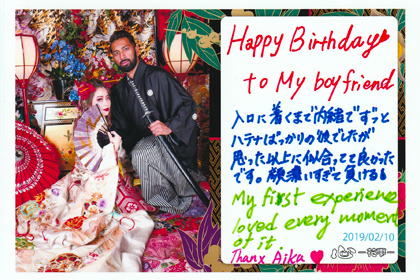 Happy Birthday
to My boyfriend
入口に着くまで内緒でずっと
ハテナばっかりの彼でしたが
思った以上に似合ってて良かった
です。顔濃いすぎて負ける
My first experience
loved every moment
of it
Thanx Aika
2019/02/10
心-花雫-